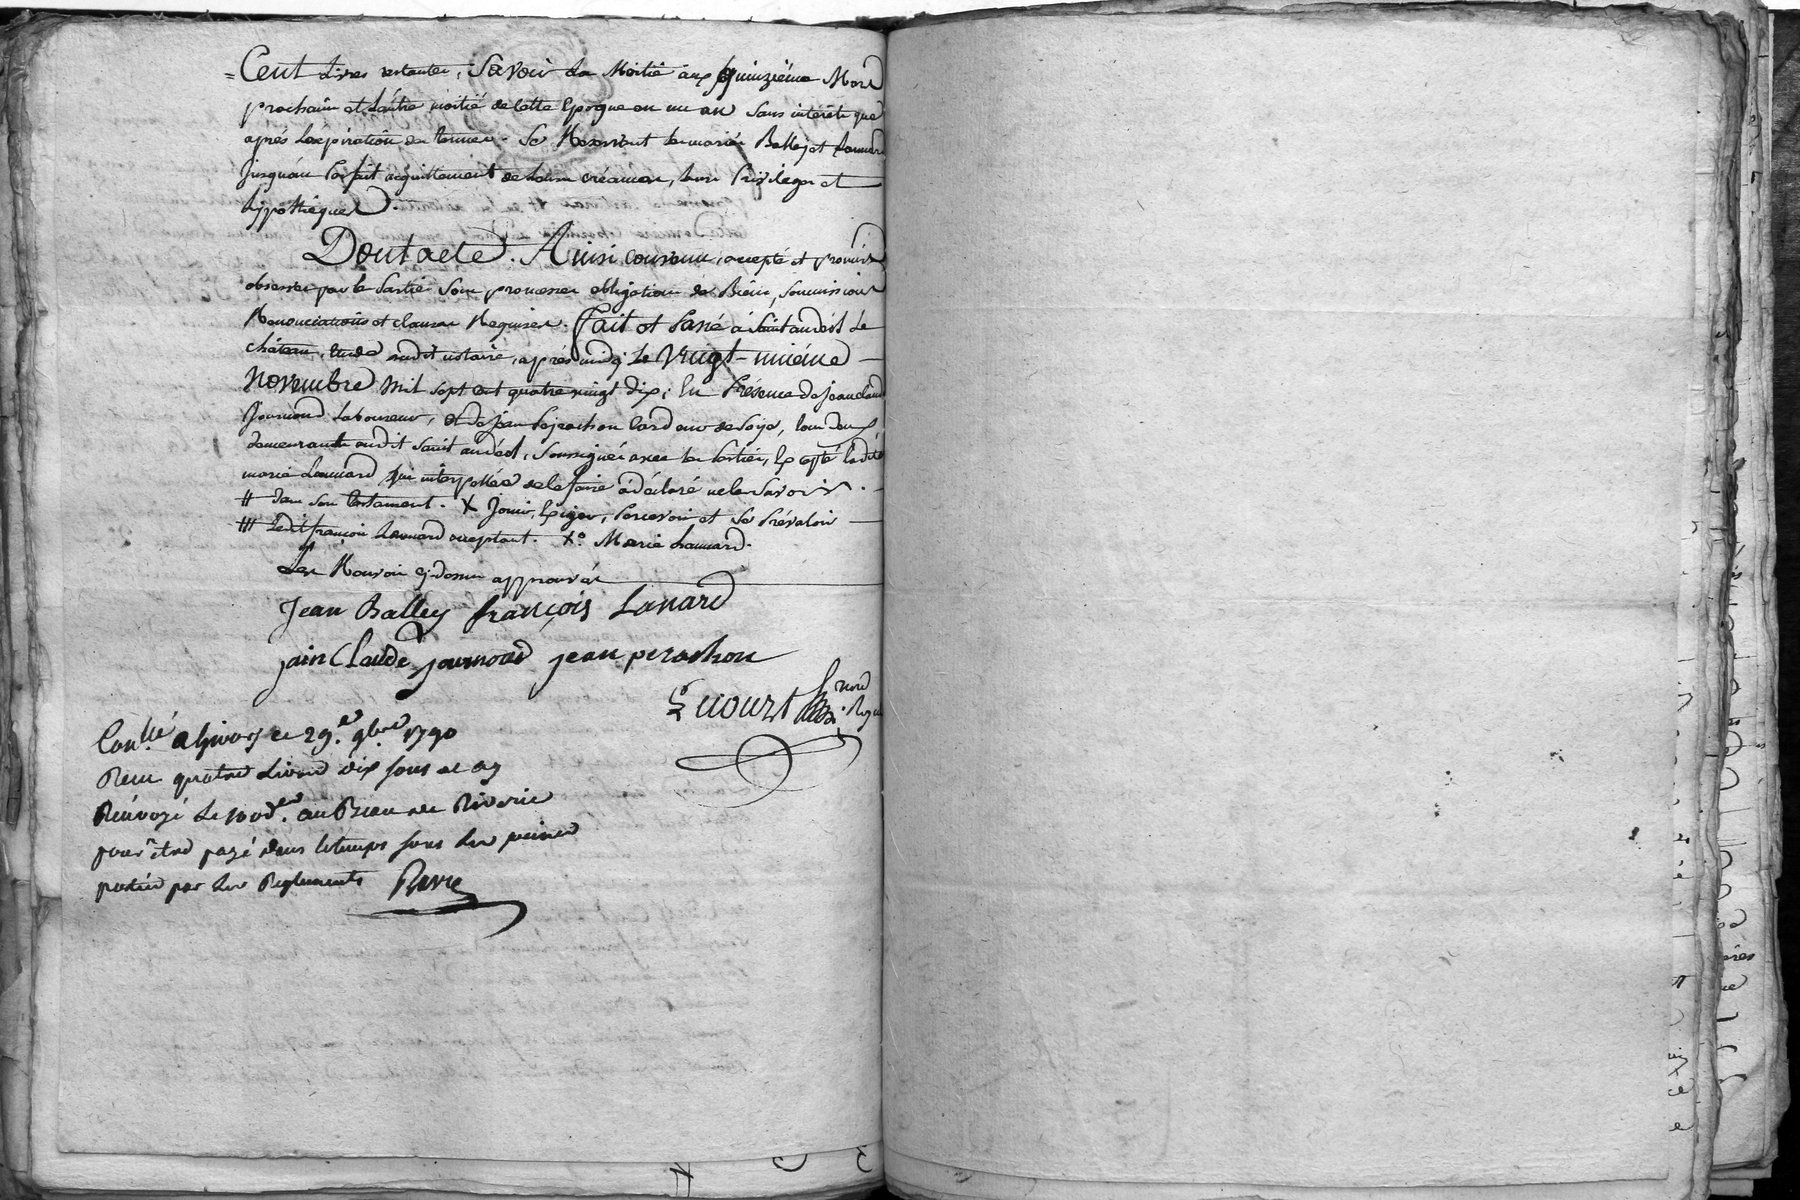 =Cent Livres restantes, Savoir La Moitié aux quinzième Mars
prochain et L'autre moitié de cette Epoque en un an Sans intérêts que
après L'expiration du termes. Se Reservant les mariés Balley et Lanard
Jusqu'au Parfait acquittement de Leurs créances, leurs Privileges et
hÿpothéques.
Dont acte. Ainsi convenu, accepté et promis
observer par les Parties Sous promesses obligation de Biens, Soumissions
Renonciations et clauses Requises. Fait et Passé à Saint andéol Le
château, Etude dudit notaire, après midy Le Vingt-uniéme
Novembre Mil Sept cent quatre vingt dix; En Présence de Jean Claude
Journoud Laboureur, Et de Jean Perachon Cardeur de Soÿe, tous deux
demeurants audit Saint andéol, Soussignés avec les Parties, Excepté Ladite
marie Lanard qui interpellée de le faire à déclaré ne le Savoir.
# dans Son testament. X Jouir, Exiger, Percevoir et Se Prévaloir
## Ledit françois Lanard acceptant. X° Marie Lanard.
Les Renvois cy-dessus approuvés
Jean Balley françois Lanard
jain Claude journoud jean perachon
nord
Roy
Con.lé a Givors ce 29.e 9bre 1790
Reçu quatre Livres dix sous
Renvoyé Le au Bureau de Riverie
pour être payé dans le temps sous les peines
portées par les Reglements Revie